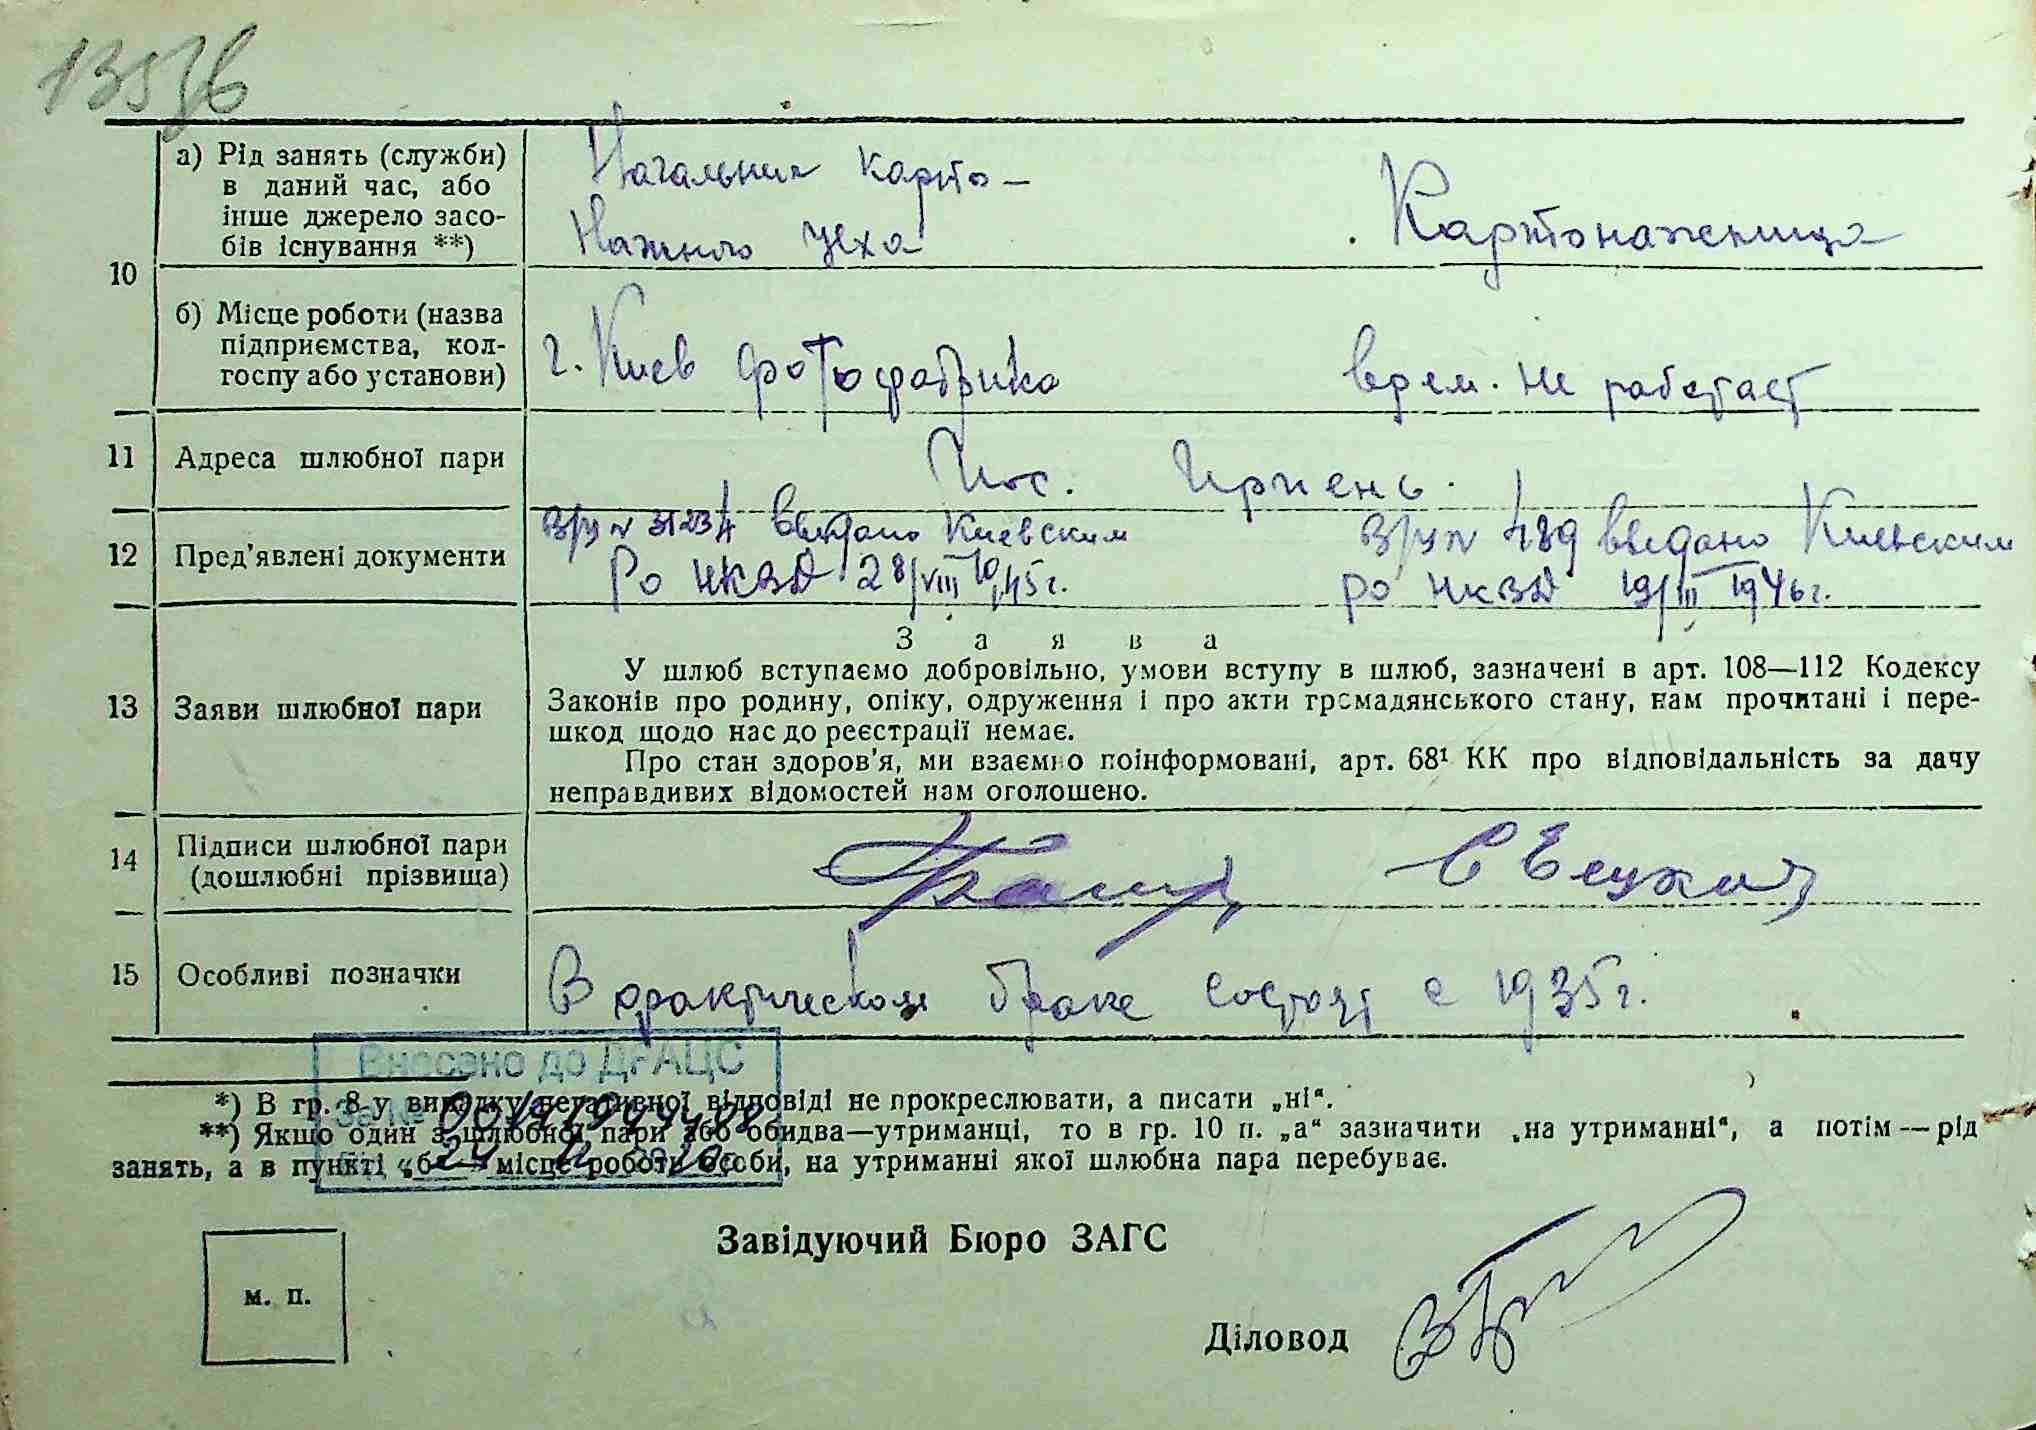 а) Рід занять (служби)
в даний час, або
інше джерело засо-
бів існування **)
Начальник карто-
нажного цеха
Картонажница
10
б) Місце роботи (назва
підприємства, кол-
госпу або установи)
г. Киев фотофабрика
врем. не работает
11 Адреса шлюбної пари
Пос. Ирпень.
12 Пред'явлені документи
выдано Киевским
РО НКВД 28/VIII 1945г.
выдано Киевским
РО НКВД 19/III 1946г.
13 Заяви шлюбної пари
Заява
У шлюб вступаємо добровільно, умови вступу в шлюб, зазначені в арт. 108—112 Кодексу
Законів про родину, опіку, одруження і про акти громадянського стану, нам прочитані і пере-
шкод щодо нас до реєстрації немає.
Про стан здоров'я, ми взаємно поінформовані, арт. 68¹ КК про відповідальність за дачу
неправдивих відомостей нам оголошено.
14 Підписи шлюбної пари
(дошлюбні прізвища)
15 Особливі позначки
В фрактическом браке состоят с 1935г.
Внесено до ДРАЦС
*) В гр. 8 у випадку негативної відповіді не прокреслювати, а писати „ні“.
**) Якщо один з шлюбної пари або обидва—утриманці, то в гр. 10 п. „а“ зазначити „на утриманні“, а потім — рід
занять, а в пункті „б“ — місце роботи особи, на утриманні якої шлюбна пара перебуває.
Завідуючий Бюро ЗАГС
м. п.
Діловод